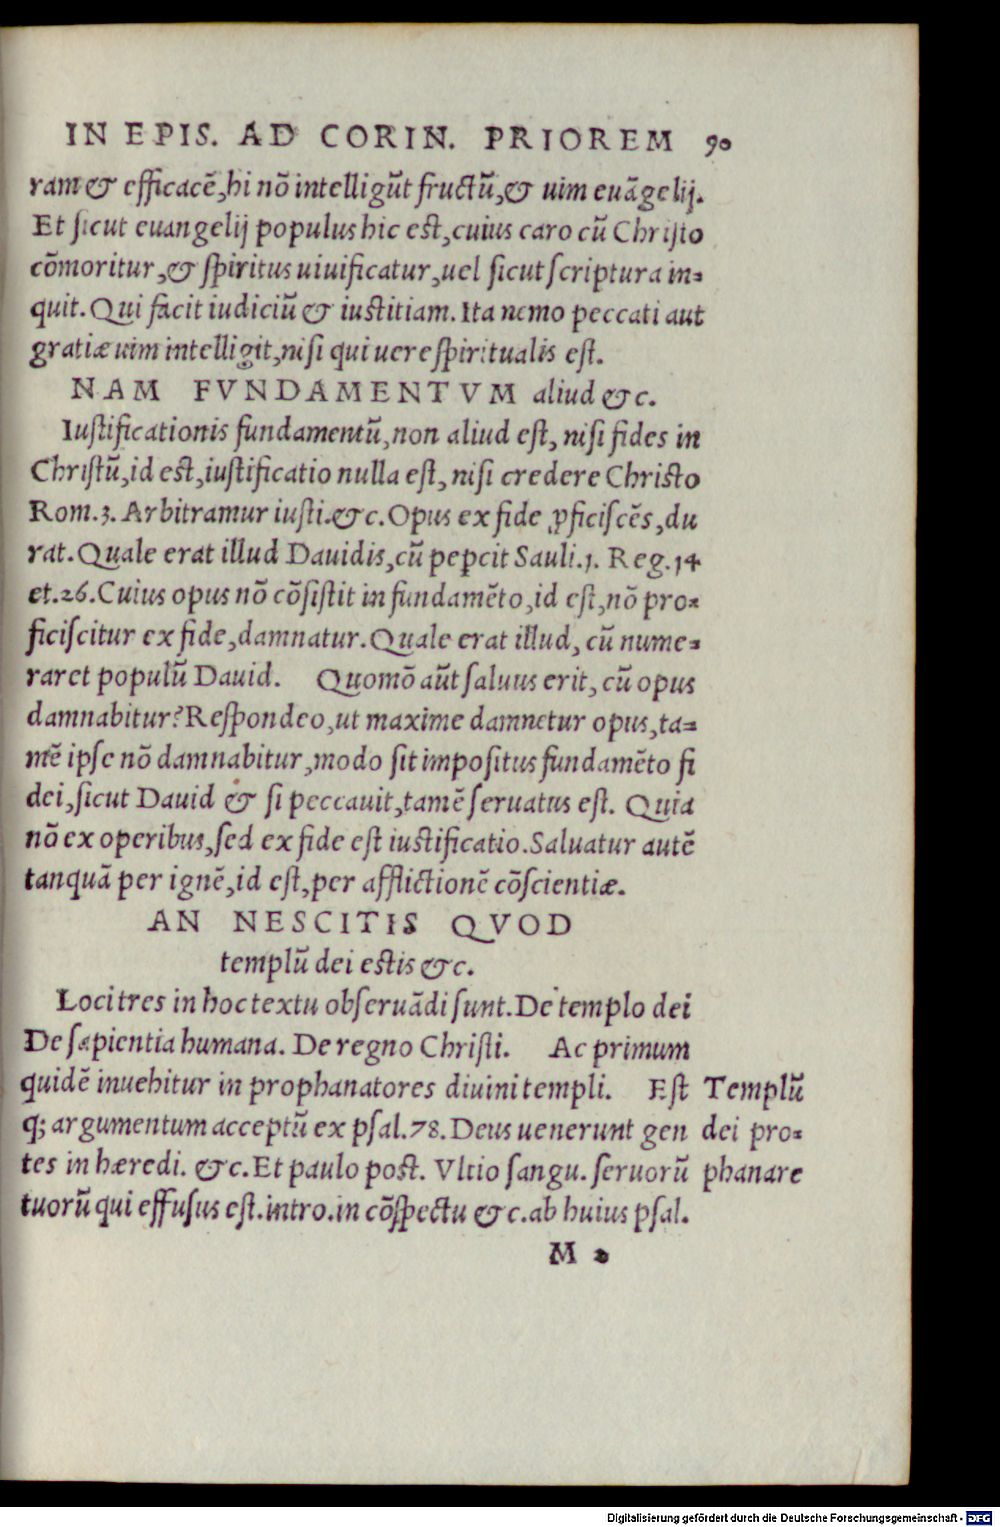 IN EPIS. AD CORIN. PRIOREM 90
ram & efficacē, hi nō intelligūt fructū, & uim euāgelij.
Et sicut euangelij populus hic est, cuius caro cū Christo
cōmoritur, & spiritus uiuificatur, uel sicut scriptura in-
quit. Qui facit iudiciū & iustitiam. Ita nemo peccati aut
gratiæ uim intelligit, nisi qui uere spiritualis est.
NAM FVNDAMENTVM aliud &c.
Iustificationis fundamentū, non aliud est, nisi fides in
Christū, id est, iustificatio nulla est, nisi credere Christo
Rom.3. Arbitramur iusti.&c. Opus ex fide ꝓficiscēs, du
rat. Quale erat illud Dauidis, cū peꝑcit Sauli.1. Reg.14
et.26. Cuius opus nō cōsistit in fundamēto, id est, nō pro-
ficiscitur ex fide, damnatur. Quale erat illud, cū nume-
raret populū Dauid. Quomō aūt saluus erit, cū opus
damnabitur? Respondeo, ut maxime damnetur opus, ta-
mē ipse nō damnabitur, modo sit impositus fundamēto fi
dei, sicut Dauid & si peccauit, tamē seruatus est. Quia
nō ex operibus, sed ex fide est iustificatio. Saluatur autē
tanquā per ignē, id est, per afflictionē cōscientiæ.
AN NESCITIS QVOD
templū dei estis &c.
Loci tres in hoc textu obseruādi sunt. De templo dei
De sapientia humana. De regno Christi. Ac primum
quidē inuehitur in prophanatores diuini templi. Est
q; argumentum acceptū ex psal.78. Deus uenerunt gen
tes in hæredi. &c. Et paulo post. Vltio sangu. seruorū
tuorū qui effusus est. intro. in cōspectu &c. ab huius psal.
Templū
dei pro-
phanare
M 2
Digitalisierung gefördert durch die Deutsche Forschungsgemeinschaft - DFG